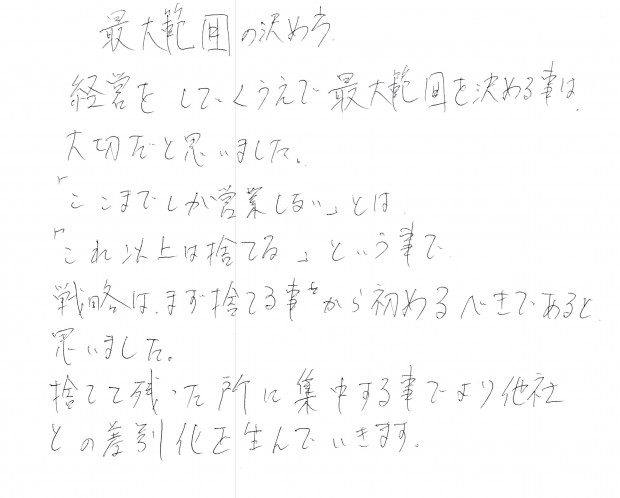 最大範囲の決め方
経営をしていくうえで最大範囲を決める事は、
大切だと思いました。
「ここまでしか営業しない」とは、
「これ以上は捨てる」という事で
戦略は、まず捨てる事をから初めるべきであると
思いました。
捨てて残った所に集中する事でより他社
との差別化を生んでいきます。